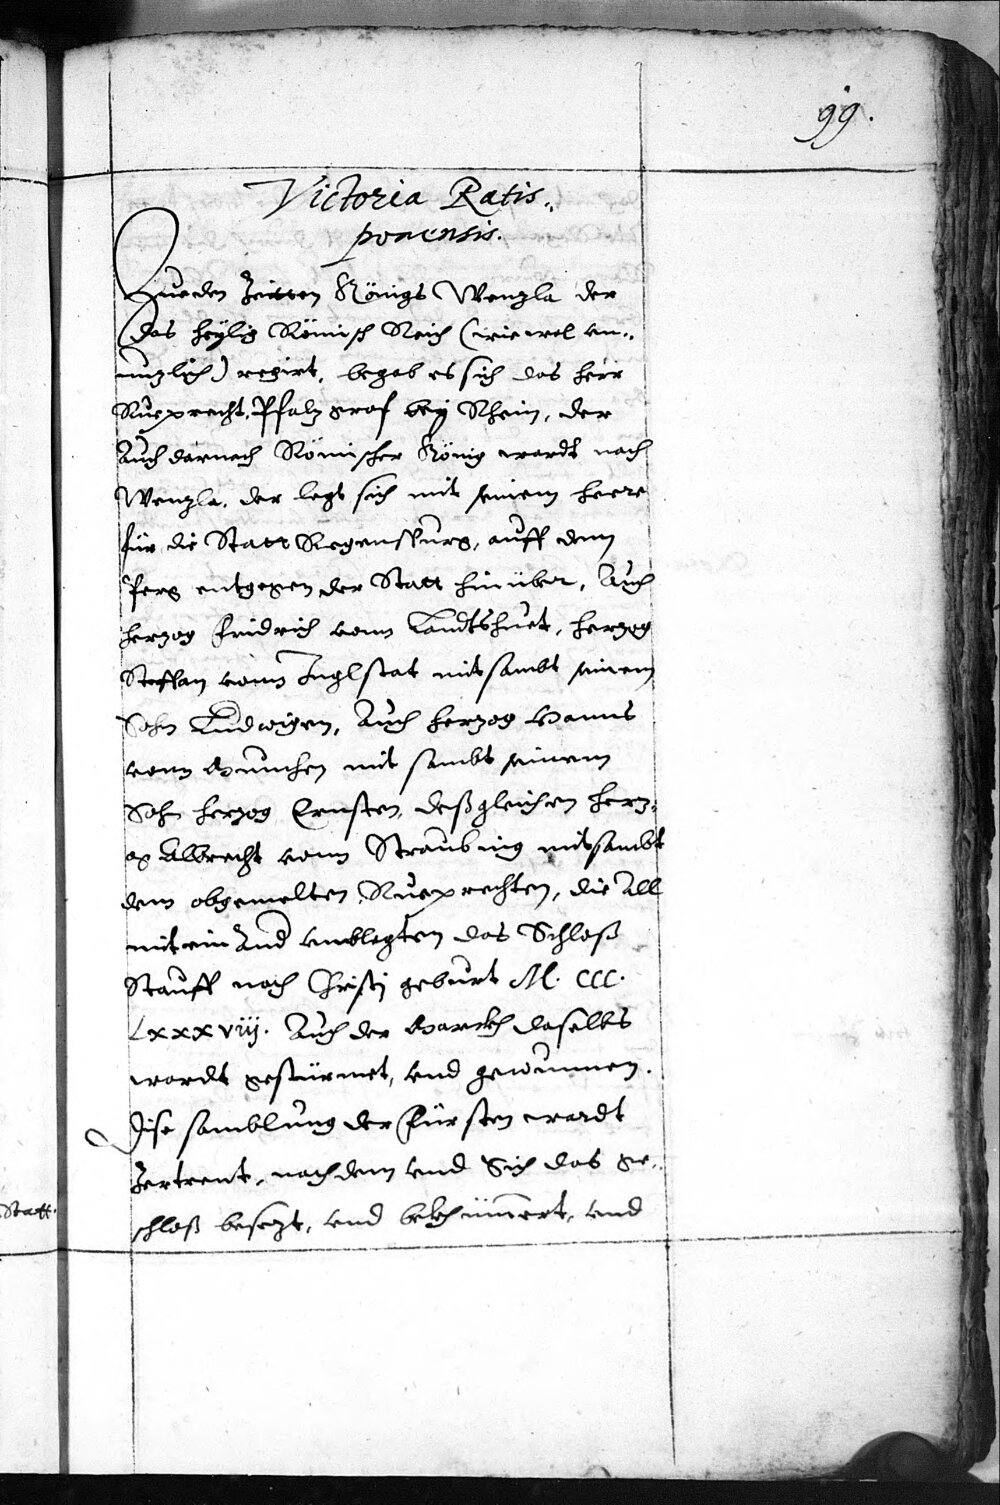 99.
Victoria Ratis.,
ponensis.
Zue den Zeitten Königs Wenzla der
(das heÿlig Römisch Reich (wie wol vn-,
nuzlich) regirt, begab es sich das herr
Rueprecht, Pfalzgraf beÿ Rhein, der
Auch darnach Römischer König wardt nach
Wenzla, der legt sich mit seinem heere
für die Statt Regenspurg, auff dem
perg entgegen der Statt hinüber, Auch
herzog Fridrich vonn Landtshuet, herzog
Steffan vonn Inglstat mitsambt seinem
Sohn Ludwigen, Auch herzog Hanns
vonn München mit sambt seinem
Sohn herzog Ernsten, deßgleichen herz-
og Albrecht vonn Straubing mitsambt
dem obgemelten Rueprechten, die All
mit ein And vmblegten das Schloß
Stauff nach Christj geburt M. CCC.
Lxxxviij. Auch der Marckh daselbs
wardt gestürmet, vnd gewunnen.
Dise samblung der Fürsten wardt
Zertrent, nach dem vnd Sich das ge-,
schloß besezt, vnd bekhümert, vnd
Statt.